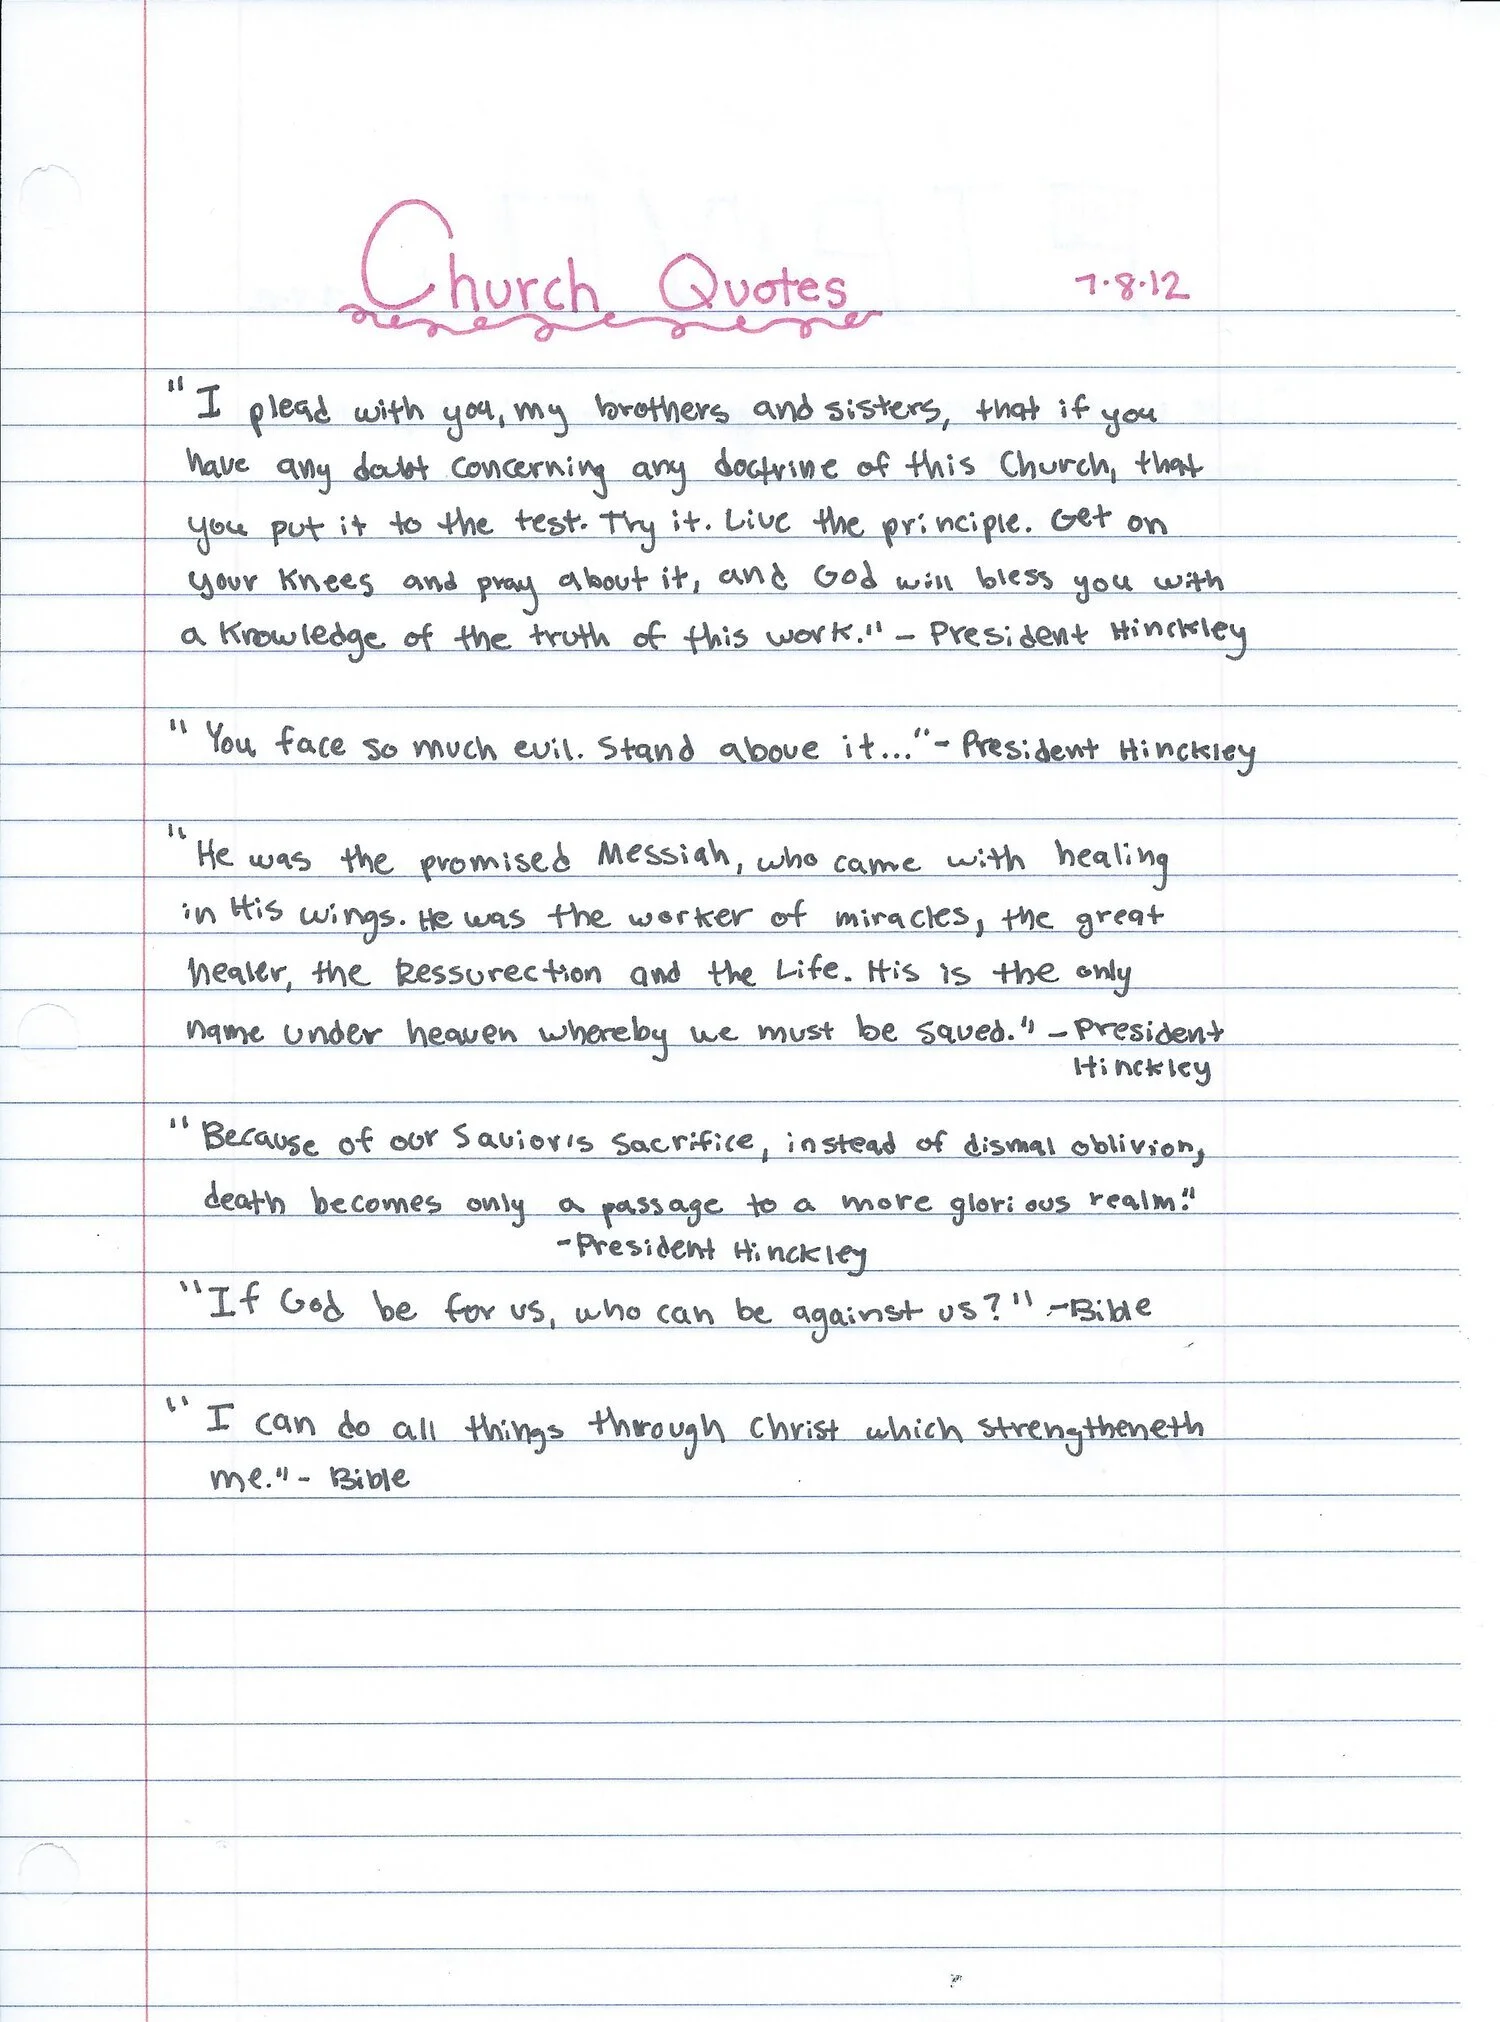 Church Quotes 7.8.12
"I plead with you, my brothers and sisters, that if you
have any doubt concerning any doctrine of this Church, that
you put it to the test. Try it. Live the principle. Get on
your knees and pray about it, and God will bless you with
a knowledge of the truth of this work." - President Hinckley
"You face so much evil. Stand above it..." - President Hinckley
"He was the promised Messiah, who came with healing
in His wings. He was the worker of miracles, the great
healer, the Ressurection and the Life. His is the only
name under heaven whereby we must be saved." - President
Hinckley
"Because of our Savior's sacrifice, instead of dismal oblivion,
death becomes only a passage to a more glorious realm."
-President Hinckley
"If God be for us, who can be against us?" -Bible
"I can do all things through Christ which strengtheneth
me." - Bible